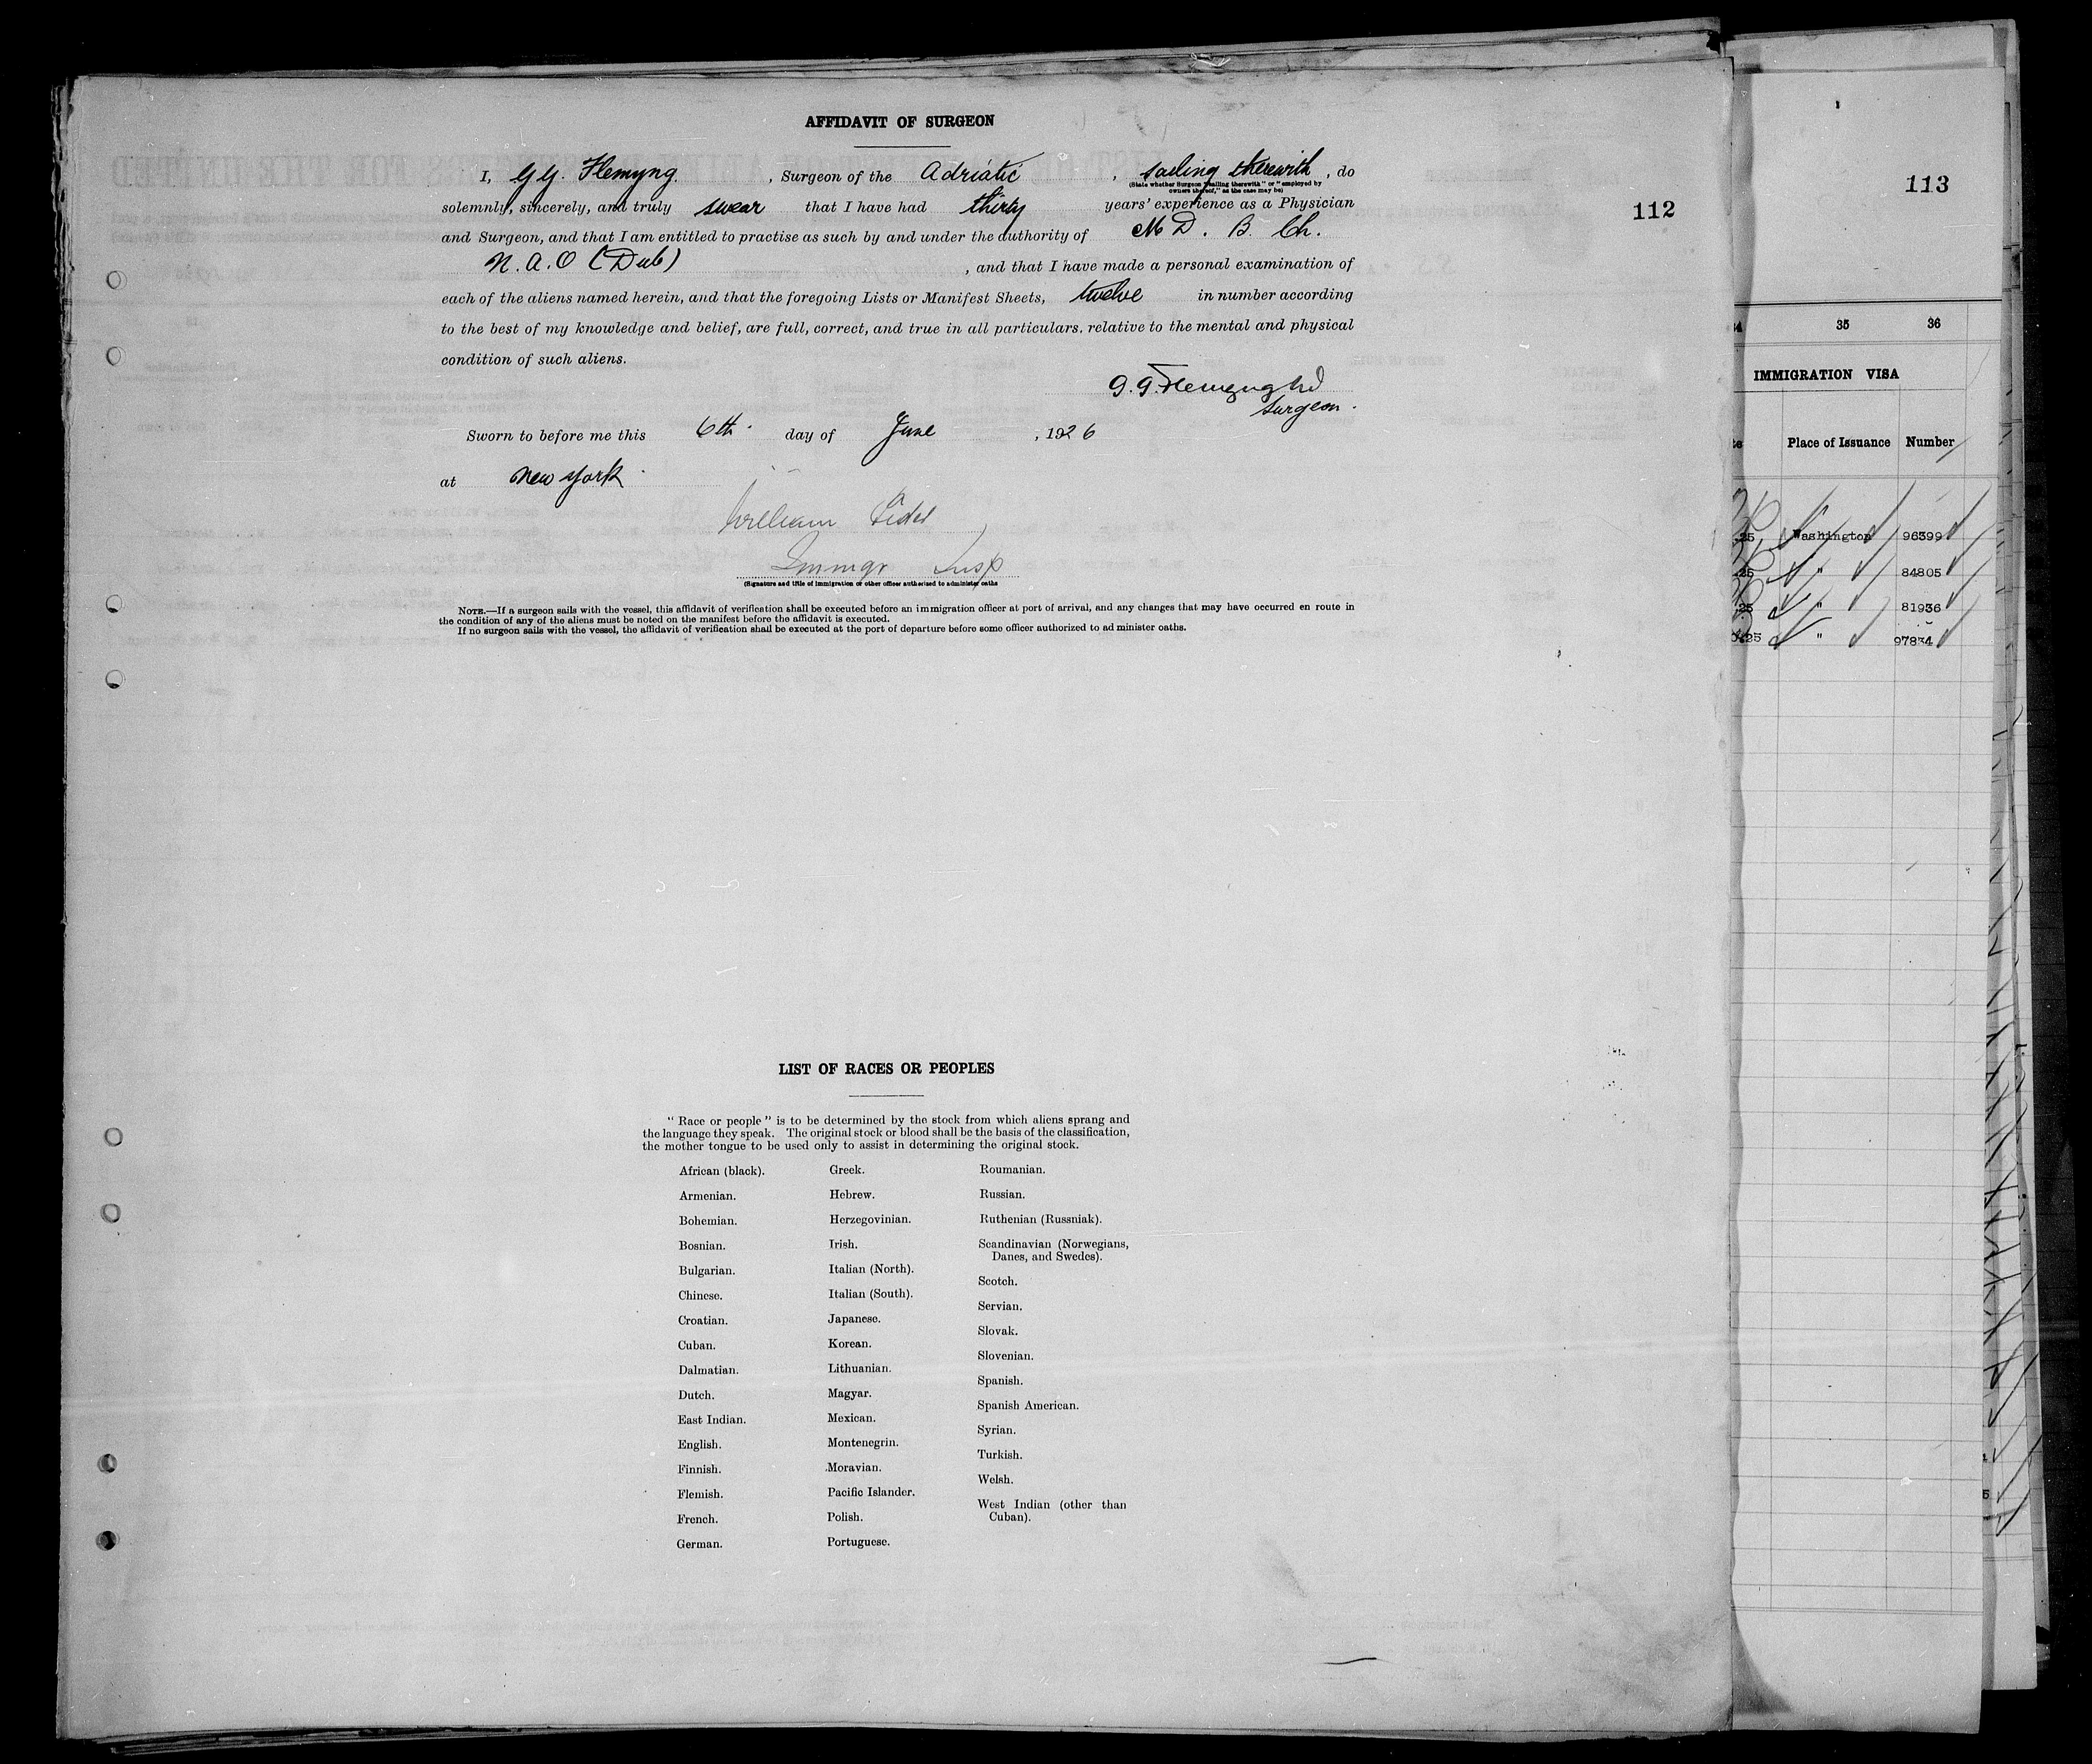 AFFIDAVIT OF SURGEON
I, G.G. Flemyng. , Surgeon of the Adriatic , sailing therewith , do
(State whether Surgeon "sailing therewith" or "employed by
owners thereof," as the case may be)
solemnly, sincerely, and truly swear that I have had thirty years' experience as a Physician
and Surgeon, and that I am entitled to practise as such by and under the authority of M D. B. Ch.
N.A.O (Dub) , and that I have made a personal examination of
each of the aliens named herein, and that the foregoing Lists or Manifest Sheets, twelve in number according
to the best of my knowledge and belief, are full, correct, and true in all particulars. relative to the mental and physical
condition of such aliens.
G.G. Flemyng Md
Surgeon.
Sworn to before me this 6th day of June , 1926
at New York
William
Immgr Insp
(Signature and title of immigration or other officer authorized to administer oaths
NOTE.—If a surgeon sails with the vessel, this affidavit of verification shall be executed before an immigration officer at port of arrival, and any changes that may have occurred en route in
the condition of any of the aliens must be noted on the manifest before the affidavit is executed.
If no surgeon sails with the vessel, the affidavit of verification shall be executed at the port of departure before some officer authorized to ad minister oaths.
112
LIST OF RACES OR PEOPLES
"Race or people" is to be determined by the stock from which aliens sprang and
the language they speak. The original stock or blood shall be the basis of the classification,
the mother tongue to be used only to assist in determining the original stock.
African (black).
Armenian.
Bohemian.
Bosnian.
Bulgarian.
Chinese.
Croatian.
Cuban.
Dalmatian.
Dutch.
East Indian.
English.
Finnish.
Flemish.
French.
German.
Greek.
Hebrew.
Herzegovinian.
Irish.
Italian (North).
Italian (South).
Japanese.
Korean.
Lithuanian.
Magyar.
Mexican.
Montenegrin.
Moravian.
Pacific Islander.
Polish.
Portuguese.
Roumanian.
Russian.
Ruthenian (Russniak).
Scandinavian (Norwegians,
Danes, and Swedes).
Scotch.
Servian.
Slovak.
Slovenian.
Spanish.
Spanish American.
Syrian.
Turkish.
Welsh.
West Indian (other than
Cuban).
113
35 36
IMMIGRATION VISA
Place of Issuance Number
25 Washington 96399
25 " 84805
25 " 81936
25 " 97834